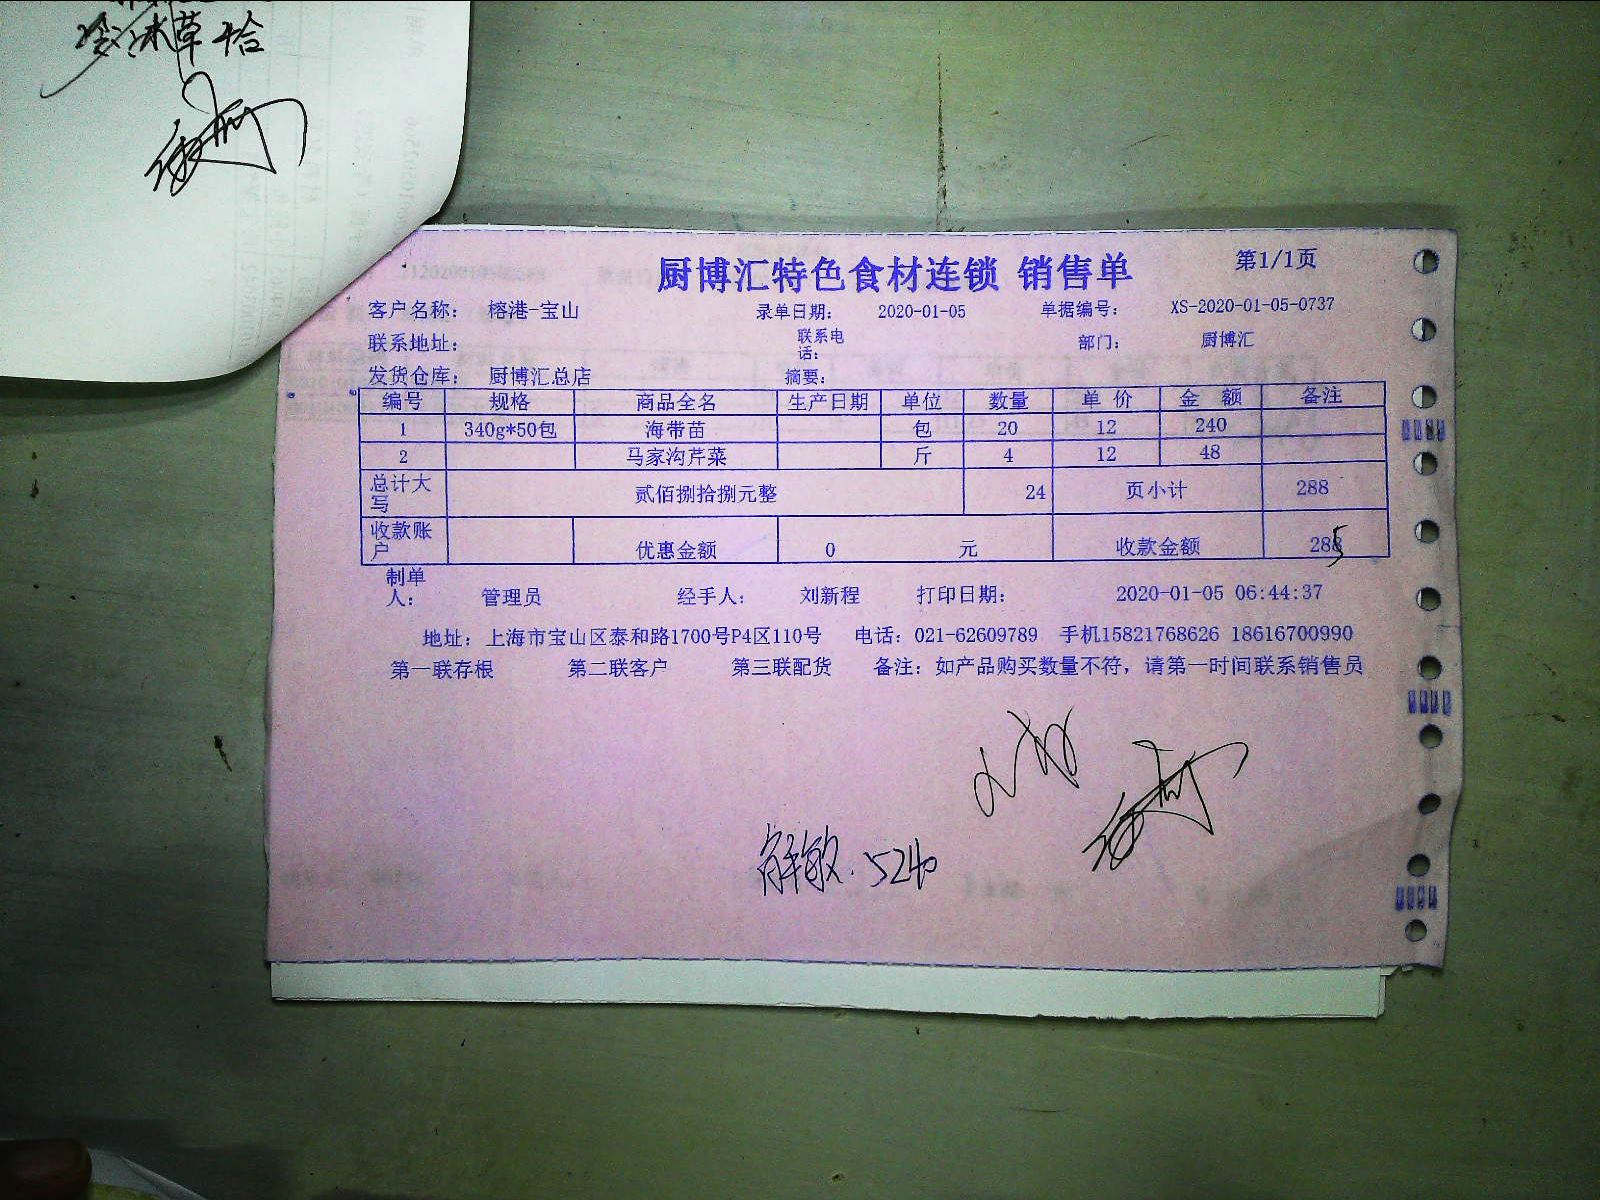 冰草 恰
厨博汇特色食材连锁 销售单 第1/1页
客户名称： 榕港-宝山 录单日期： 2020-01-05 单据编号： XS-2020-01-05-0737
联系地址： 联系电话： 部门： 厨博汇
发货仓库： 厨博汇总店 摘要：
编号 规格 商品全名 生产日期 单位 数量 单 价 金 额 备注
1 340g*50包 海带苗 包 20 12 240
2 马家沟芹菜 斤 4 12 48
总计大写 贰佰捌拾捌元整 24 页小计 288
收款账户 优惠金额 0 元 收款金额 288 5
制单人： 管理员 经手人： 刘新程 打印日期： 2020-01-05 06:44:37
地址：上海市宝山区泰和路1700号P4区110号 电话：021-62609789 手机15821768626 18616700990
第一联存根 第二联客户 第三联配货 备注：如产品购买数量不符，请第一时间联系销售员
解敏.5240